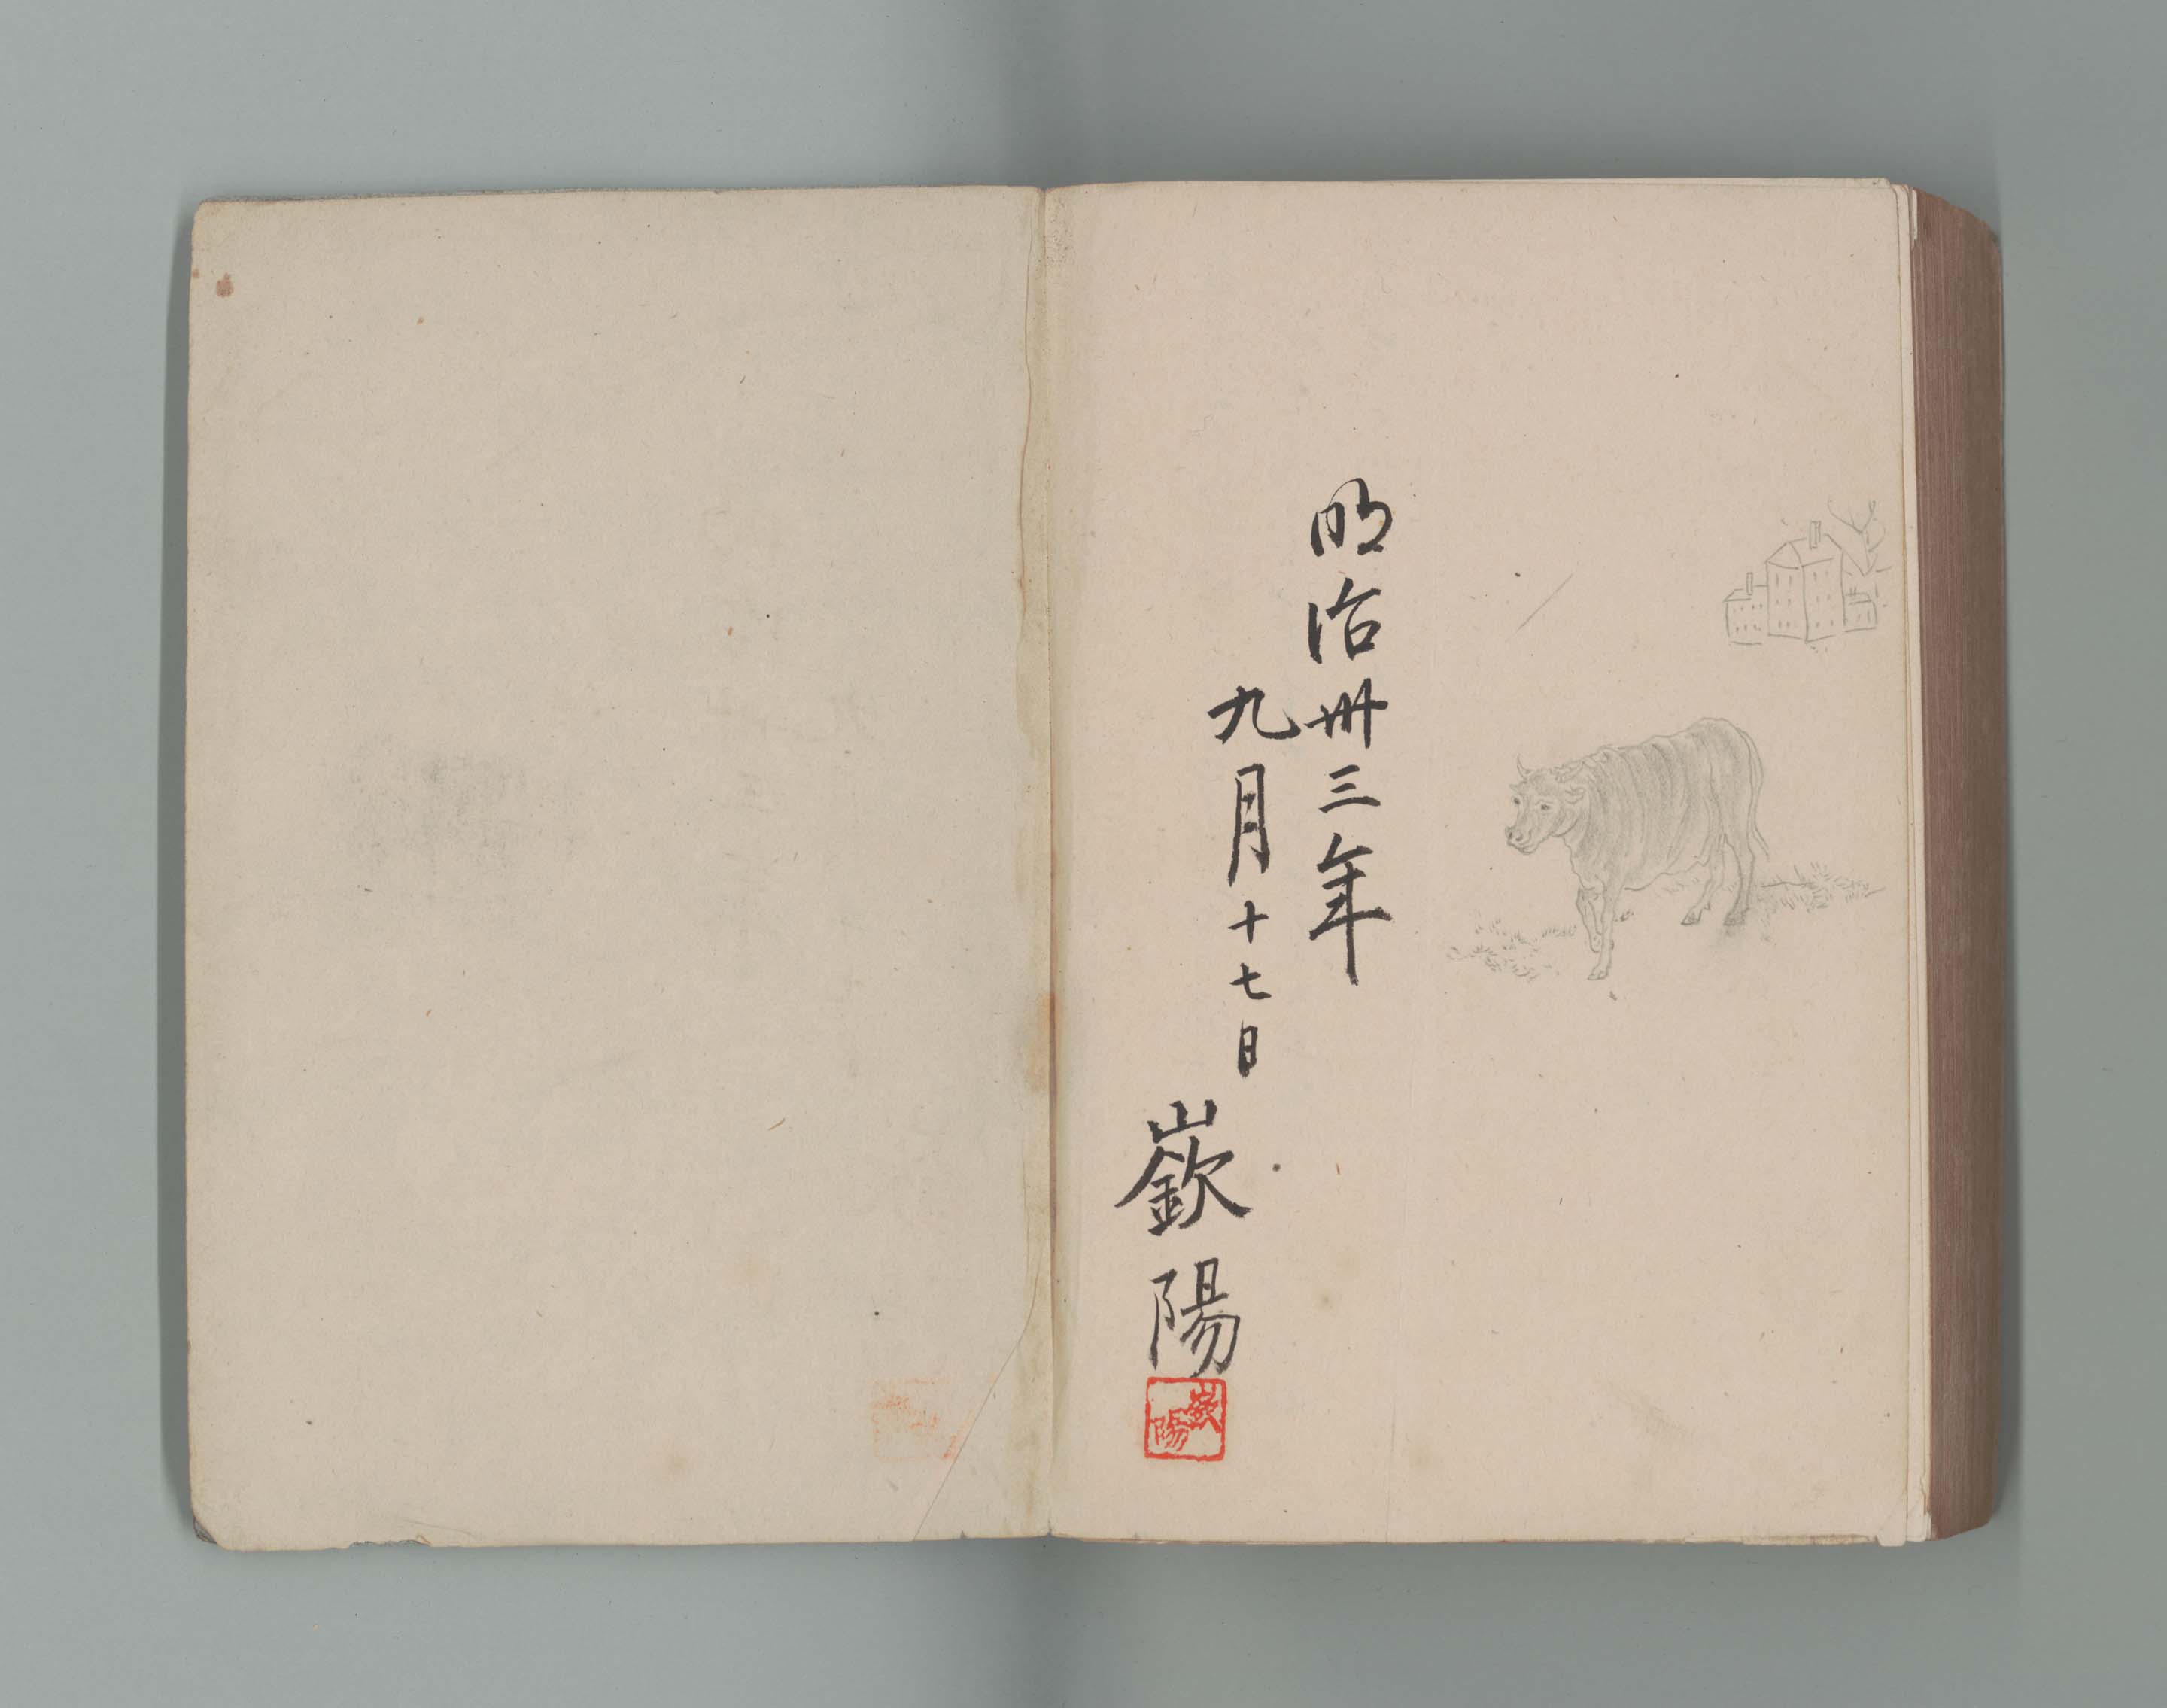 明治卅三年
九月十七日
嶔陽
嶔陽